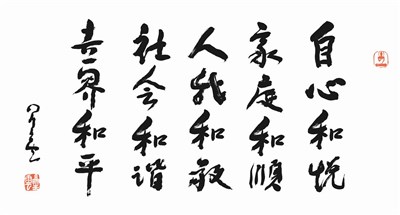 自心和悦
家庭和順
人我和敬
社会和谐
世界和平